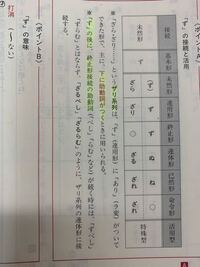 「ず」の接続と活用
接続 基本形 未然形 連用形 終止形 連体形 已然形 命令形 活用型
未然形 ず ず ず ぬ ね ○ 特殊型
ざら ざり ○ ざる ざれ ざれ
「ざら・ざり・…」というザリ系列は、「ず」(連用形)に「あり」(ラ変)がついて
できた形で、主に、下に助動詞がつくときに用いられる。
*「ず」の後に、終止形接続の助動詞(「べし」「らむ」など)が続く時には、「ずべし」
「ずらむ」とはならず、「ざるべし」「ざるらむ」のように、ザリ系列の連体形に接
続する。
(ポイントB)
「ず」の意味
打消 (〜ない)